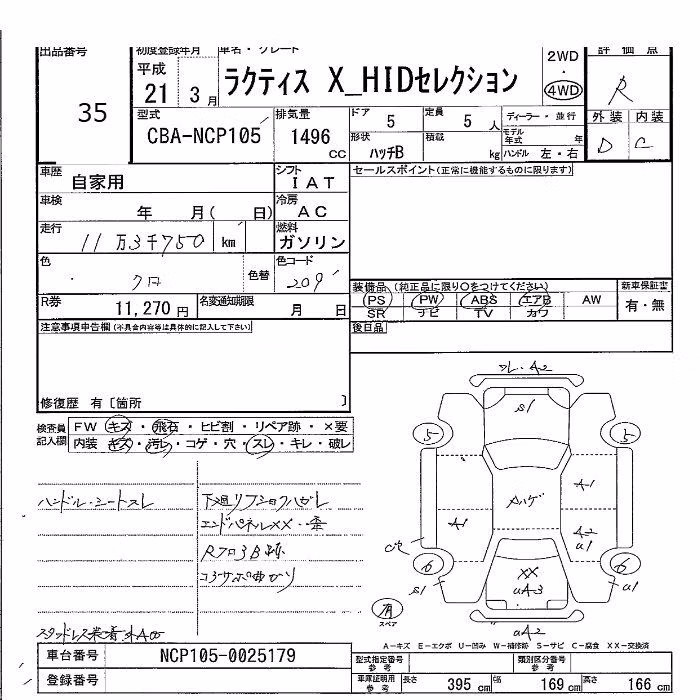 出品番号
35
初度登録年月
平成
21 3 月
車名・グレード
ラクティス X_HIDセレクション
2WD
・
4WD
評価点
R
外装 内装
D C
型式
CBA-NCP105
排気量
1496
CC
ドア
5
定員
5 人
ディーラー・並行
形状
ハッチB
積載
kg
モデル年式 年
ハンドル 左・右
車歴
自家用
シフト
IAT
車検
年 月( 日)
冷房
AC
走行
11万3千750 km
燃料
ガソリン
色
クロ
色替
色コード
209
R券
11,270 円
名変通知期限
月 日
セールスポイント(正常に機能するものに限ります)
装備品 (純正品に限り○をつけてください)
PS PW ABS エアB AW
SR ナビ TV カワ
新車保証書
有・無
後日品
注意事項申告欄(不具合内容等は具体的に記入して下さい)
修復歴 有〔箇所 〕
検査員記入欄
FW キズ・飛石・ヒビ割・リペア跡・×要
内装 キズ・汚レ・コゲ・穴・スレ・キレ・破レ
ハンドル・シートスレ
エンドパネルXX
S1
5
5
A1
A1
A2
U1
6
6
S1
U1
XX
UA3
UA2
有
スペア
A-キズ E-エクボ U-凹み W-補修跡 S-サビ C-腐食 XX-交換済
車台番号
NCP105-0025179
登録番号
型式指定番号
参考
類別区分番号
参考
車庫証明用
参考
長さ 395 cm
幅 169 cm
高さ 166 cm